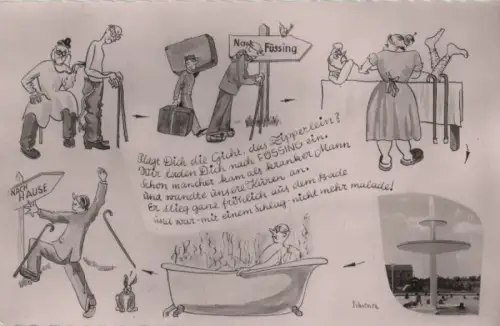 Nach Füssing
Plagt Dich die Gicht, das Zipperlein?
Wir laden Dich nach FÜSSING ein.
Schon mancher kam als kranker Mann
und wandte unsere Kuren an.
Er stieg ganz fröhlich aus dem Bade
und war-mit einem Schlag-nicht mehr malade!
NACH HAUSE